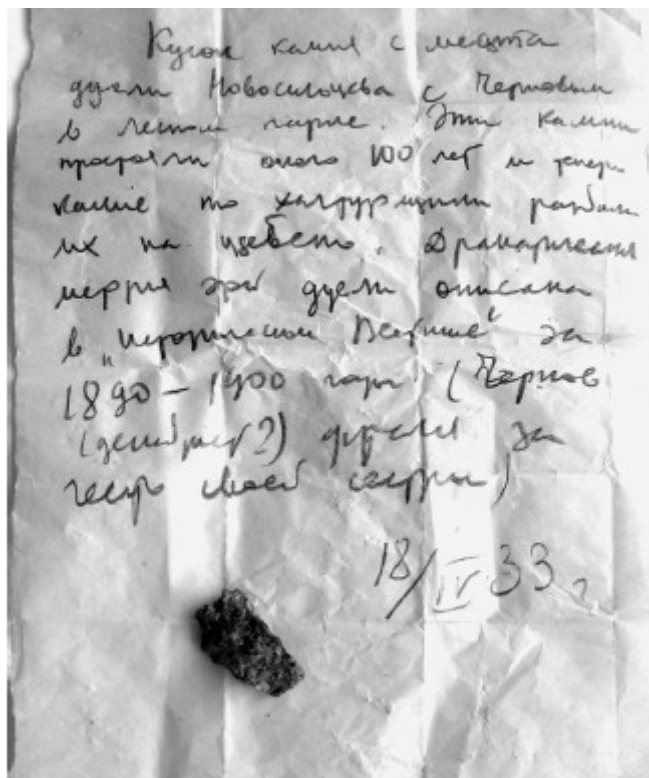 Кусок камня с места
дуели Новосильцева с Черновым
в лесном парке. Эти камни
простояли около 100 лет и теперь
какие то халтурщики разбили
их на щебень. Драматическая
история этой дуели описана
в „Историческом Вестнике“ за
1890 – 1900 годы (Чернов
(декабрист?) дрался за
честь своей сестры)
18/IV 33 г